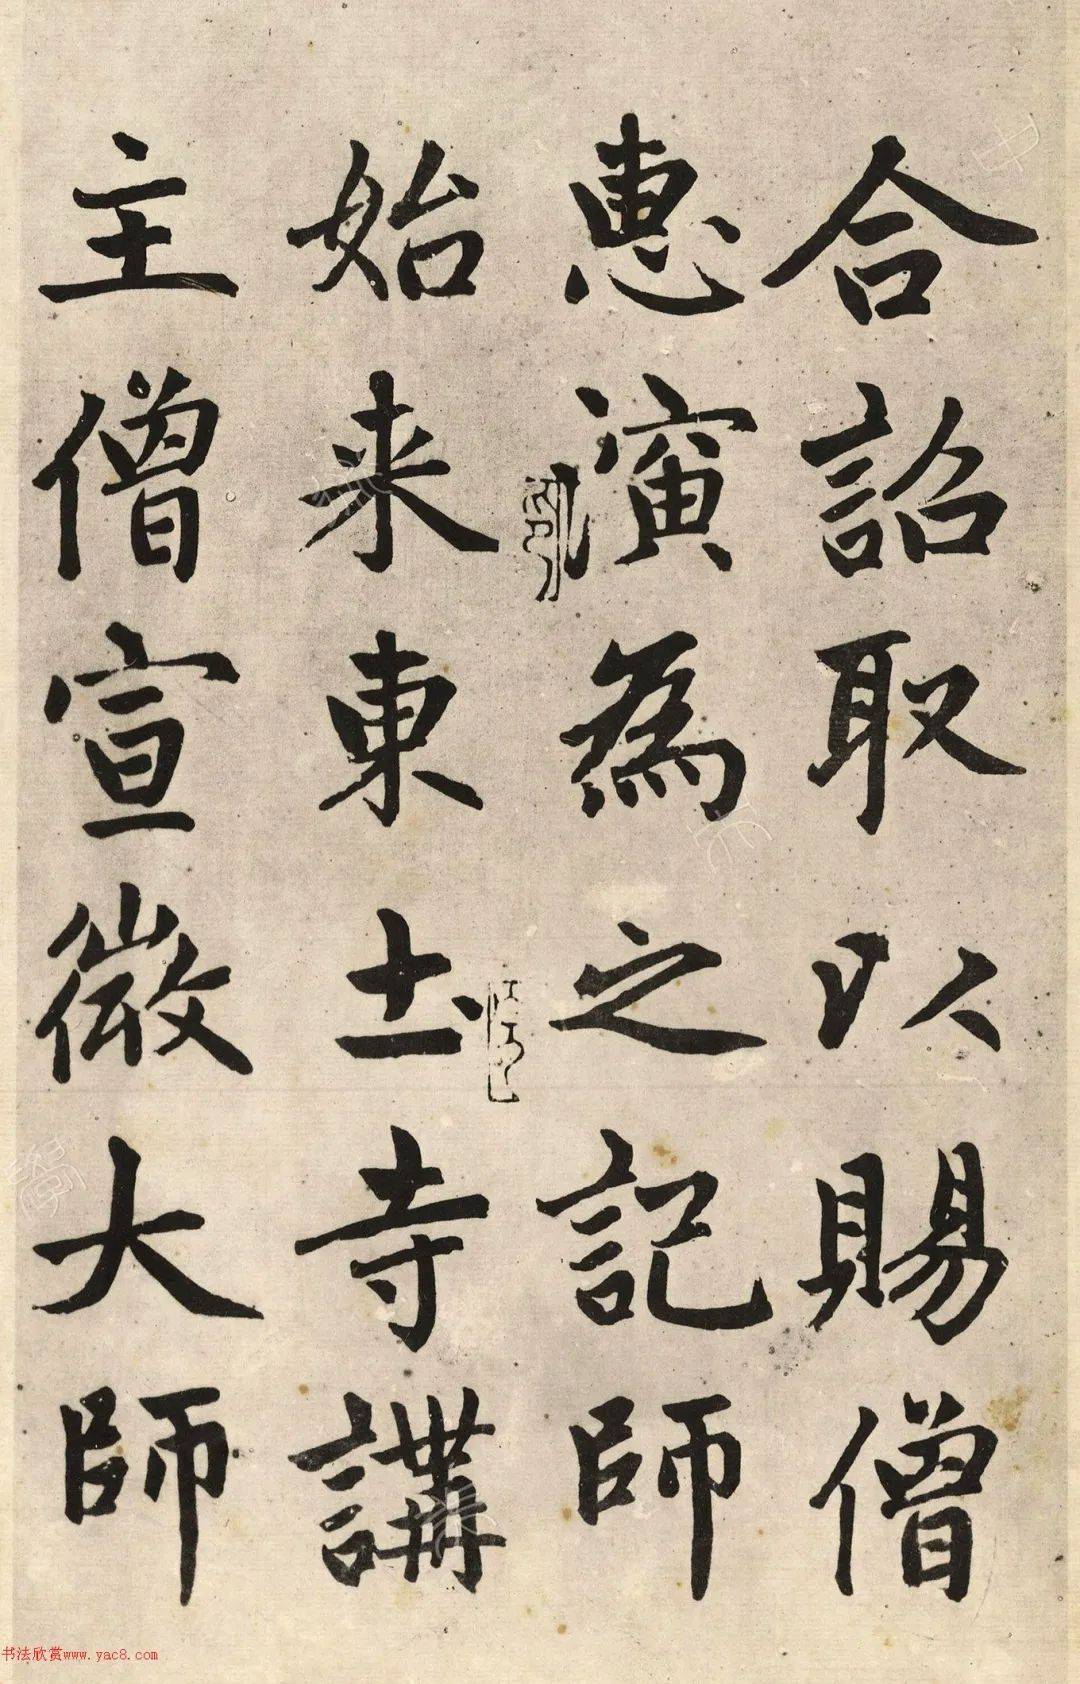 合詔取以賜僧
惠演為之記師
始来東土寺講
主僧宣微大師
书法欣赏www.yac8.com